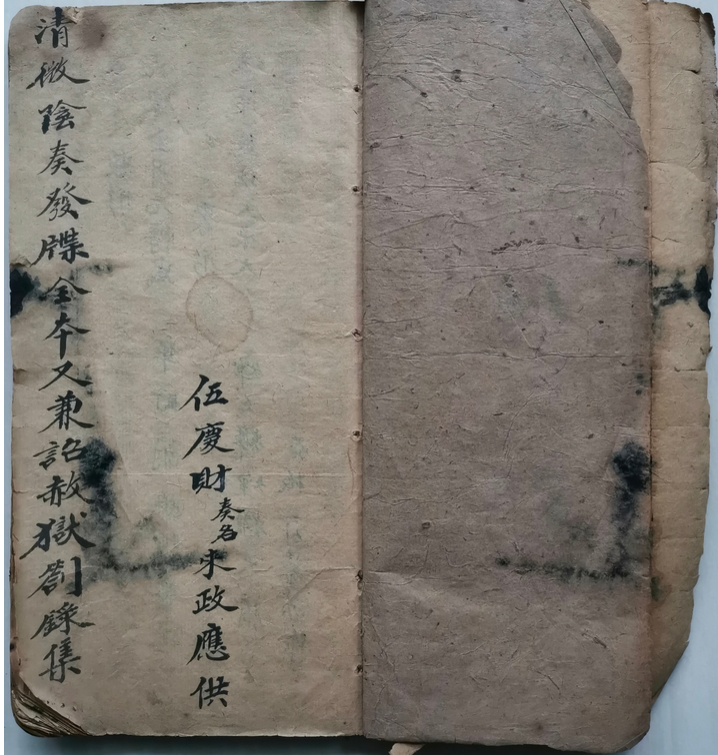 伍慶財奏名政應供
清微陰奏發牒全本又兼詔赦獄劄錄集